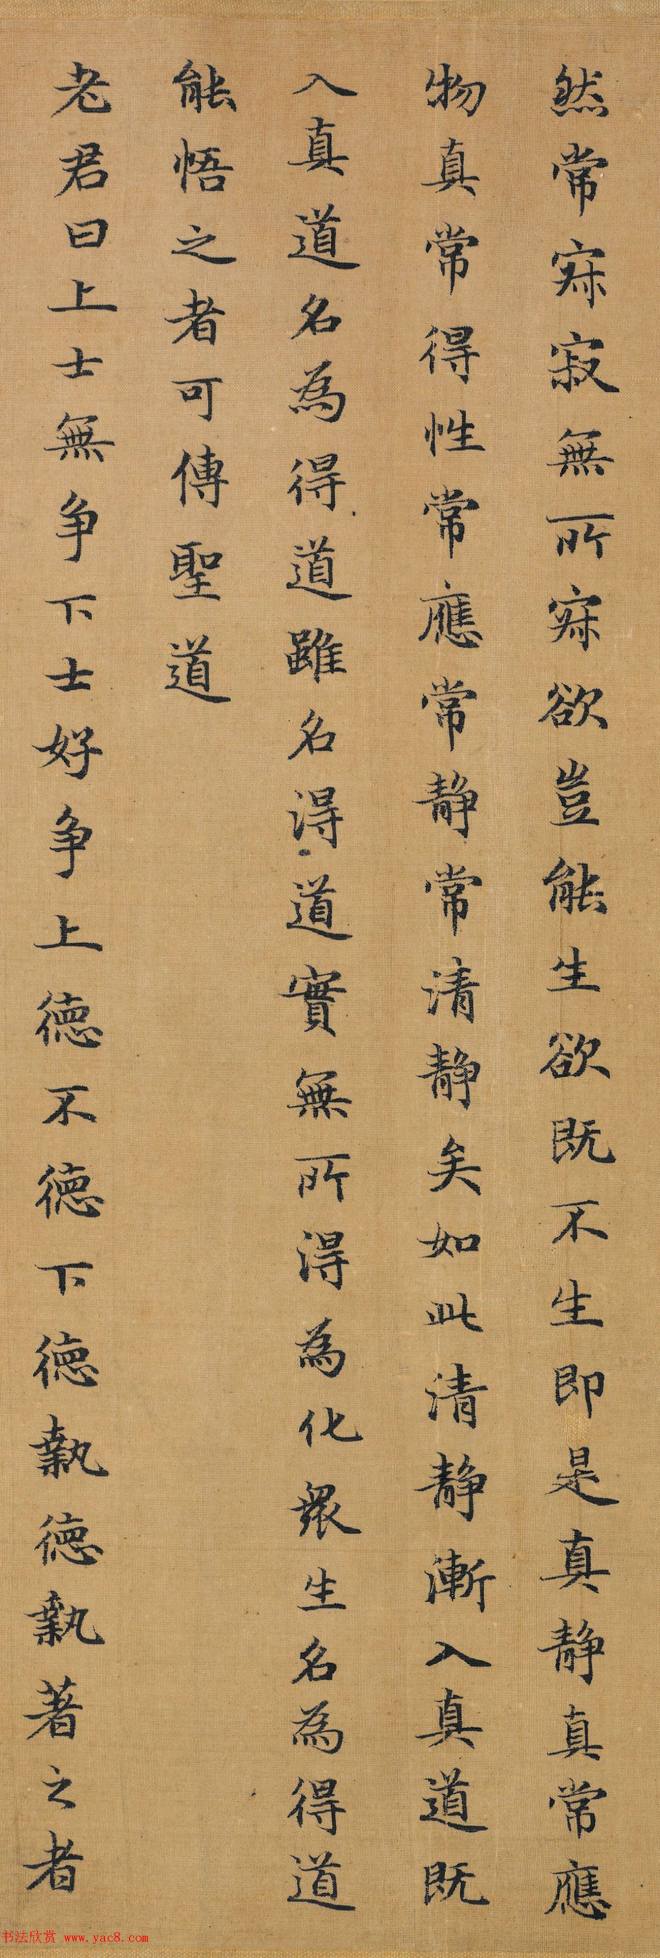 然常寂寂無所寂欲豈能生欲既不生即是真静真常應
物真常得性常應常静常清静矣如此清静漸入真道既
入真道名為得道雖名得道實無所得為化衆生名為得道
能悟之者可傳聖道
老君曰上士無争下士好争上德不德下德執德執著之者
书法欣赏 www.yac8.com